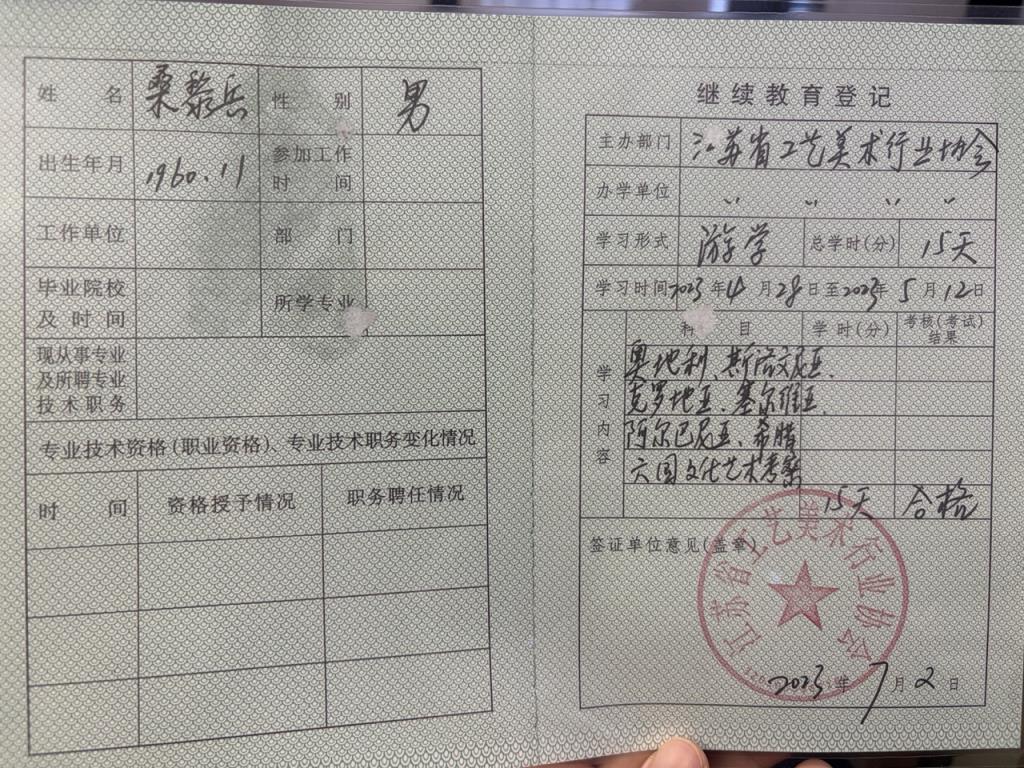 姓名 桑黎兵 性别 男
出生年月 1960.11 参加工作时间
工作单位 部门
毕业院校及时间 所学专业
现从事专业及所聘专业技术职务
专业技术资格(职业资格)、专业技术职务变化情况
时间 资格授予情况 职务聘任情况
继续教育登记
主办部门 江苏省工艺美术行业协会
办学单位 〃 〃 〃 〃
学习形式 游学 总学时(分) 15天
学习时间 2023年4月28日至2023年5月12日
学习内容 科目 学时(分) 考核(考试)结果
奥地利、斯洛文尼亚、
克罗地亚、塞尔维亚、
阿尔巴尼亚、希腊
六国文化艺术考察
15天 合格
签证单位意见(盖章)
江苏省工艺美术行业协会
2023年7月2日